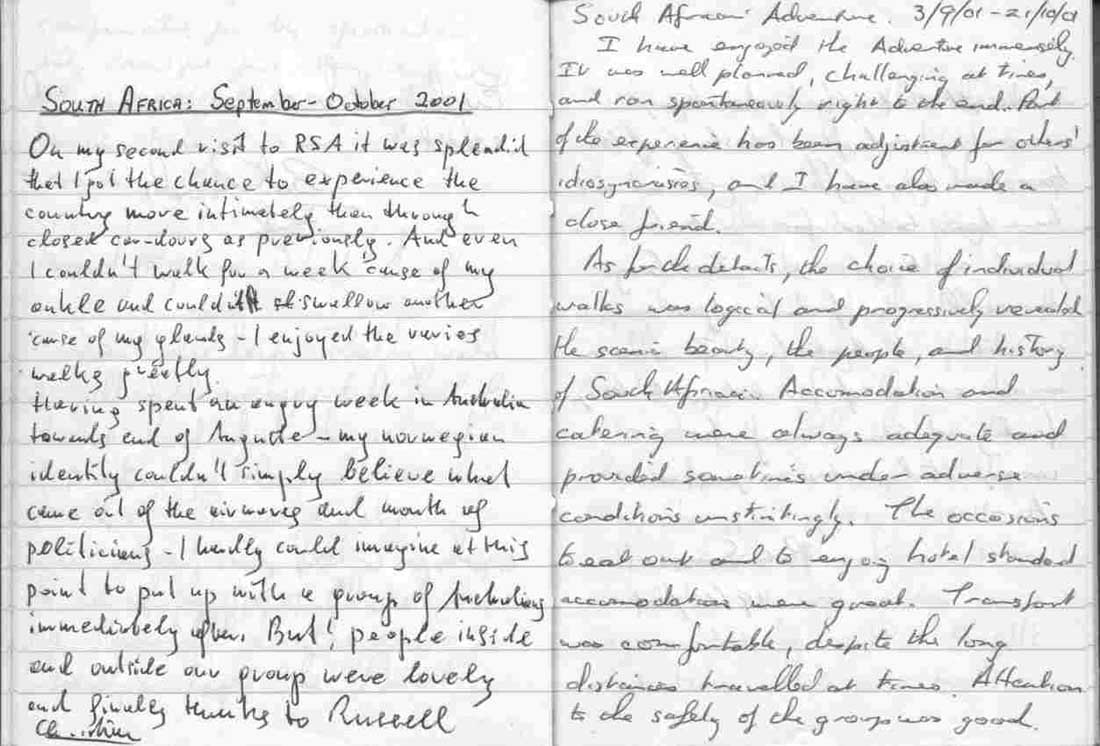 SOUTH AFRICA: September - October 2001
On my second visit to RSA it was splendid
that I got the chance to experience the
country more intimately than through
closed car-doors as previously. And even
I couldn't walk for a week 'cause of my
ankle and couldn't swallow another
'cause of my glands - I enjoyed the varies
walks greatly.
Having spent an angry week in Australia
towards end of Auguste - my norwegian
identity couldn't simply believe what
came out of the airwaves and mouth of
politicians - I hardly could imagine at this
point to put up with a group of Australians
immediately after. But! people inside
and outside our group were lovely
and finally thanks to Russell
South African Adventure. 3/9/01 - 21/10/01
I have enjoyed the Adventure immensely.
It was well planned, challenging at times,
and ran spontaneously right to the end. Part
of the experience has been adjustment for others'
idiosyncrasies, and I have also made a
close friend.
As for the details, the choice of individual
walks was logical and progressively revealed
the scenic beauty, the people, and history
of South Africa. Accomodation and
catering were always adequate and
provided sometimes under adverse
conditions unstintingly. The occasions
to eat out and to enjoy hotel standard
accomodation were great. Transport
was comfortable, despite the long
distances travelled at times. Attention
to the safety of the group was good.